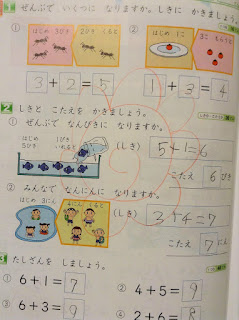 1 ぜんぶで いくつに なりますか。しきに かきましょう。
① はじめ 3びき 2ひき くると
② はじめ 1こ 3こ もらうと
3+2=5
1+3=4
2 しきと こたえを かきましょう。
① ぜんぶで なんびきに なりますか。
はじめ 5ひき 1ぴき いれると
(しき) 5+1=6
こたえ 6ぴき
② みんなで なんにんに なりますか。
はじめ 3にん 4にん くると
(しき) 3+4=7
こたえ 7にん
3 たしざんを しましょう。
① 6+1=7
② 4+5=9
③ 6+3=9
④ 2+6=8